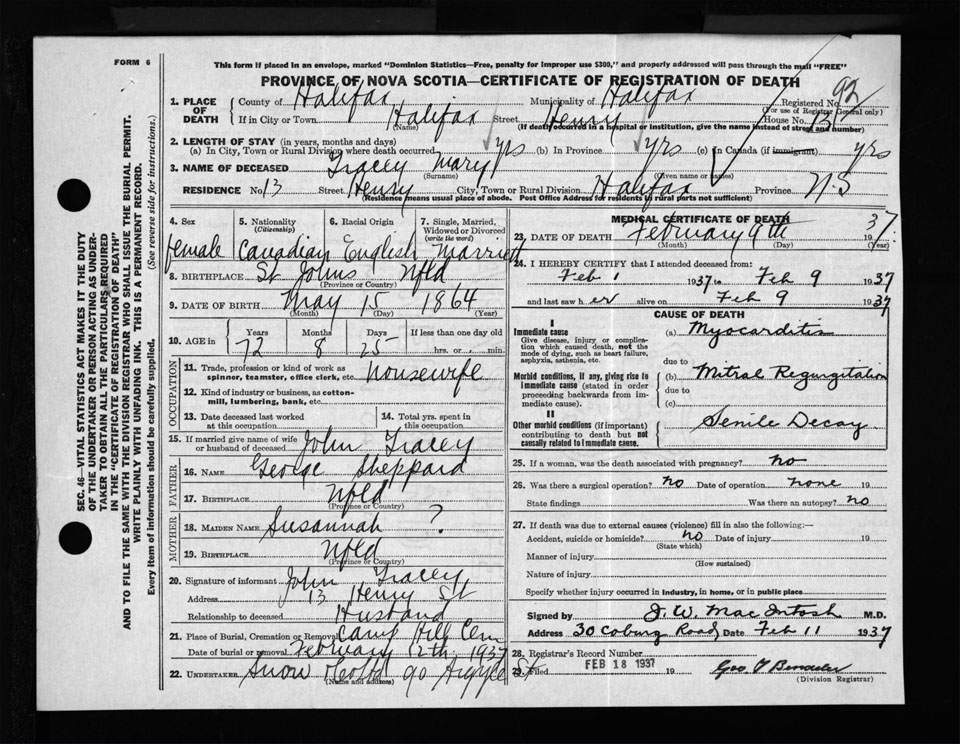 FORM 6
This form if placed in an envelope, marked "Dominion Statistics—Free, penalty for improper use $300," and properly addressed will pass through the mail "FREE"
PROVINCE OF NOVA SCOTIA—CERTIFICATE OF REGISTRATION OF DEATH
92
1. PLACE OF DEATH
County of Halifax Municipality of Halifax Registered No.
(For use of Registrar General only)
If in City or Town Halifax Street Henry House No. 13
(Name) (If death occurred in a hospital or institution, give the name instead of street and number)
2. LENGTH OF STAY (in years, months and days)
(a) In City, Town or Rural Division where death occurred yrs (b) In Province yrs (c) In Canada (if immigrant) yrs
3. NAME OF DECEASED Tracey Mary
(Surname) (Given name or names)
RESIDENCE No. 13 Street Henry City, Town or Rural Division Halifax Province N.S
(Residence means usual place of abode. Post Office Address for residents in rural parts not sufficient)
4. Sex
female
5. Nationality (Citizenship)
Canadian
6. Racial Origin
English
7. Single, Married, Widowed or Divorced (write the word)
Married
8. BIRTHPLACE St Johns Nfld
(Province or Country)
9. DATE OF BIRTH May 15 1864
(Month) (Day) (Year)
10. AGE in
Years Months Days If less than one day old
72 8 25 hrs. or min.
OCCUPATION
11. Trade, profession or kind of work as spinner, teamster, office clerk, etc. Housewife
12. Kind of industry or business, as cotton-mill, lumbering, bank, etc.
13. Date deceased last worked at this occupation
14. Total yrs. spent in this occupation
15. If married give name of wife or husband of deceased John Tracey
FATHER
16. NAME George Sheppard
17. BIRTHPLACE Nfld
(Province or Country)
MOTHER
18. MAIDEN NAME Susannah ?
19. BIRTHPLACE Nfld
(Province or Country)
20. Signature of informant John Tracey
Address 13 Henry St
Relationship to deceased Husband
21. Place of Burial, Cremation or Removal Camp Hill Cem
Date of burial or removal February 12th. 1937
22. UNDERTAKER Snow & Co Ltd 90 Argyle St
(Name and address)
MEDICAL CERTIFICATE OF DEATH
23. DATE OF DEATH February 9th 1937.
(Month) (Day) (Year)
24. I HEREBY CERTIFY that I attended deceased from:
Feb 1 1937 to Feb 9 1937
and last saw her alive on Feb 9 1937
CAUSE OF DEATH
I
Immediate cause
Give disease, injury or complication which caused death, not the mode of dying, such as heart failure, asphyxia, asthenia, etc.
(a) Myocarditis
due to
Morbid conditions, if any, giving rise to immediate cause (stated in order proceeding backwards from immediate cause).
(b) Mitral Regurgitation
due to
(c)
II
Other morbid conditions (if important) contributing to death but not causally related to immediate cause.
Senile Decay
25. If a woman, was the death associated with pregnancy? no
26. Was there a surgical operation? no Date of operation none 19
State findings Was there an autopsy? no
27. If death was due to external causes (violence) fill in also the following:—
Accident, suicide or homicide? no Date of injury 19
(State which)
Manner of injury
(How sustained)
Nature of injury
Specify whether injury occurred in industry, in home, or in public place
Signed by J. W. MacIntosh M.D.
Address 30 Coburg Road Date Feb 11 1937
28. Registrar's Record Number
Filed FEB 18 1937 19
(Division Registrar)
SEC. 46—VITAL STATISTICS ACT MAKES IT THE DUTY
OF THE UNDERTAKER OR PERSON ACTING AS UNDER-
TAKER TO OBTAIN ALL THE PARTICULARS REQUIRED
IN THE "CERTIFICATE OF REGISTRATION OF DEATH"
AND TO FILE THE SAME WITH THE DIVISION REGISTRAR WHO SHALL ISSUE THE BURIAL PERMIT.
WRITE PLAINLY WITH UNFADING INK. THIS IS A PERMANENT RECORD.
Every item of information should be carefully supplied. (See reverse side for instructions.)